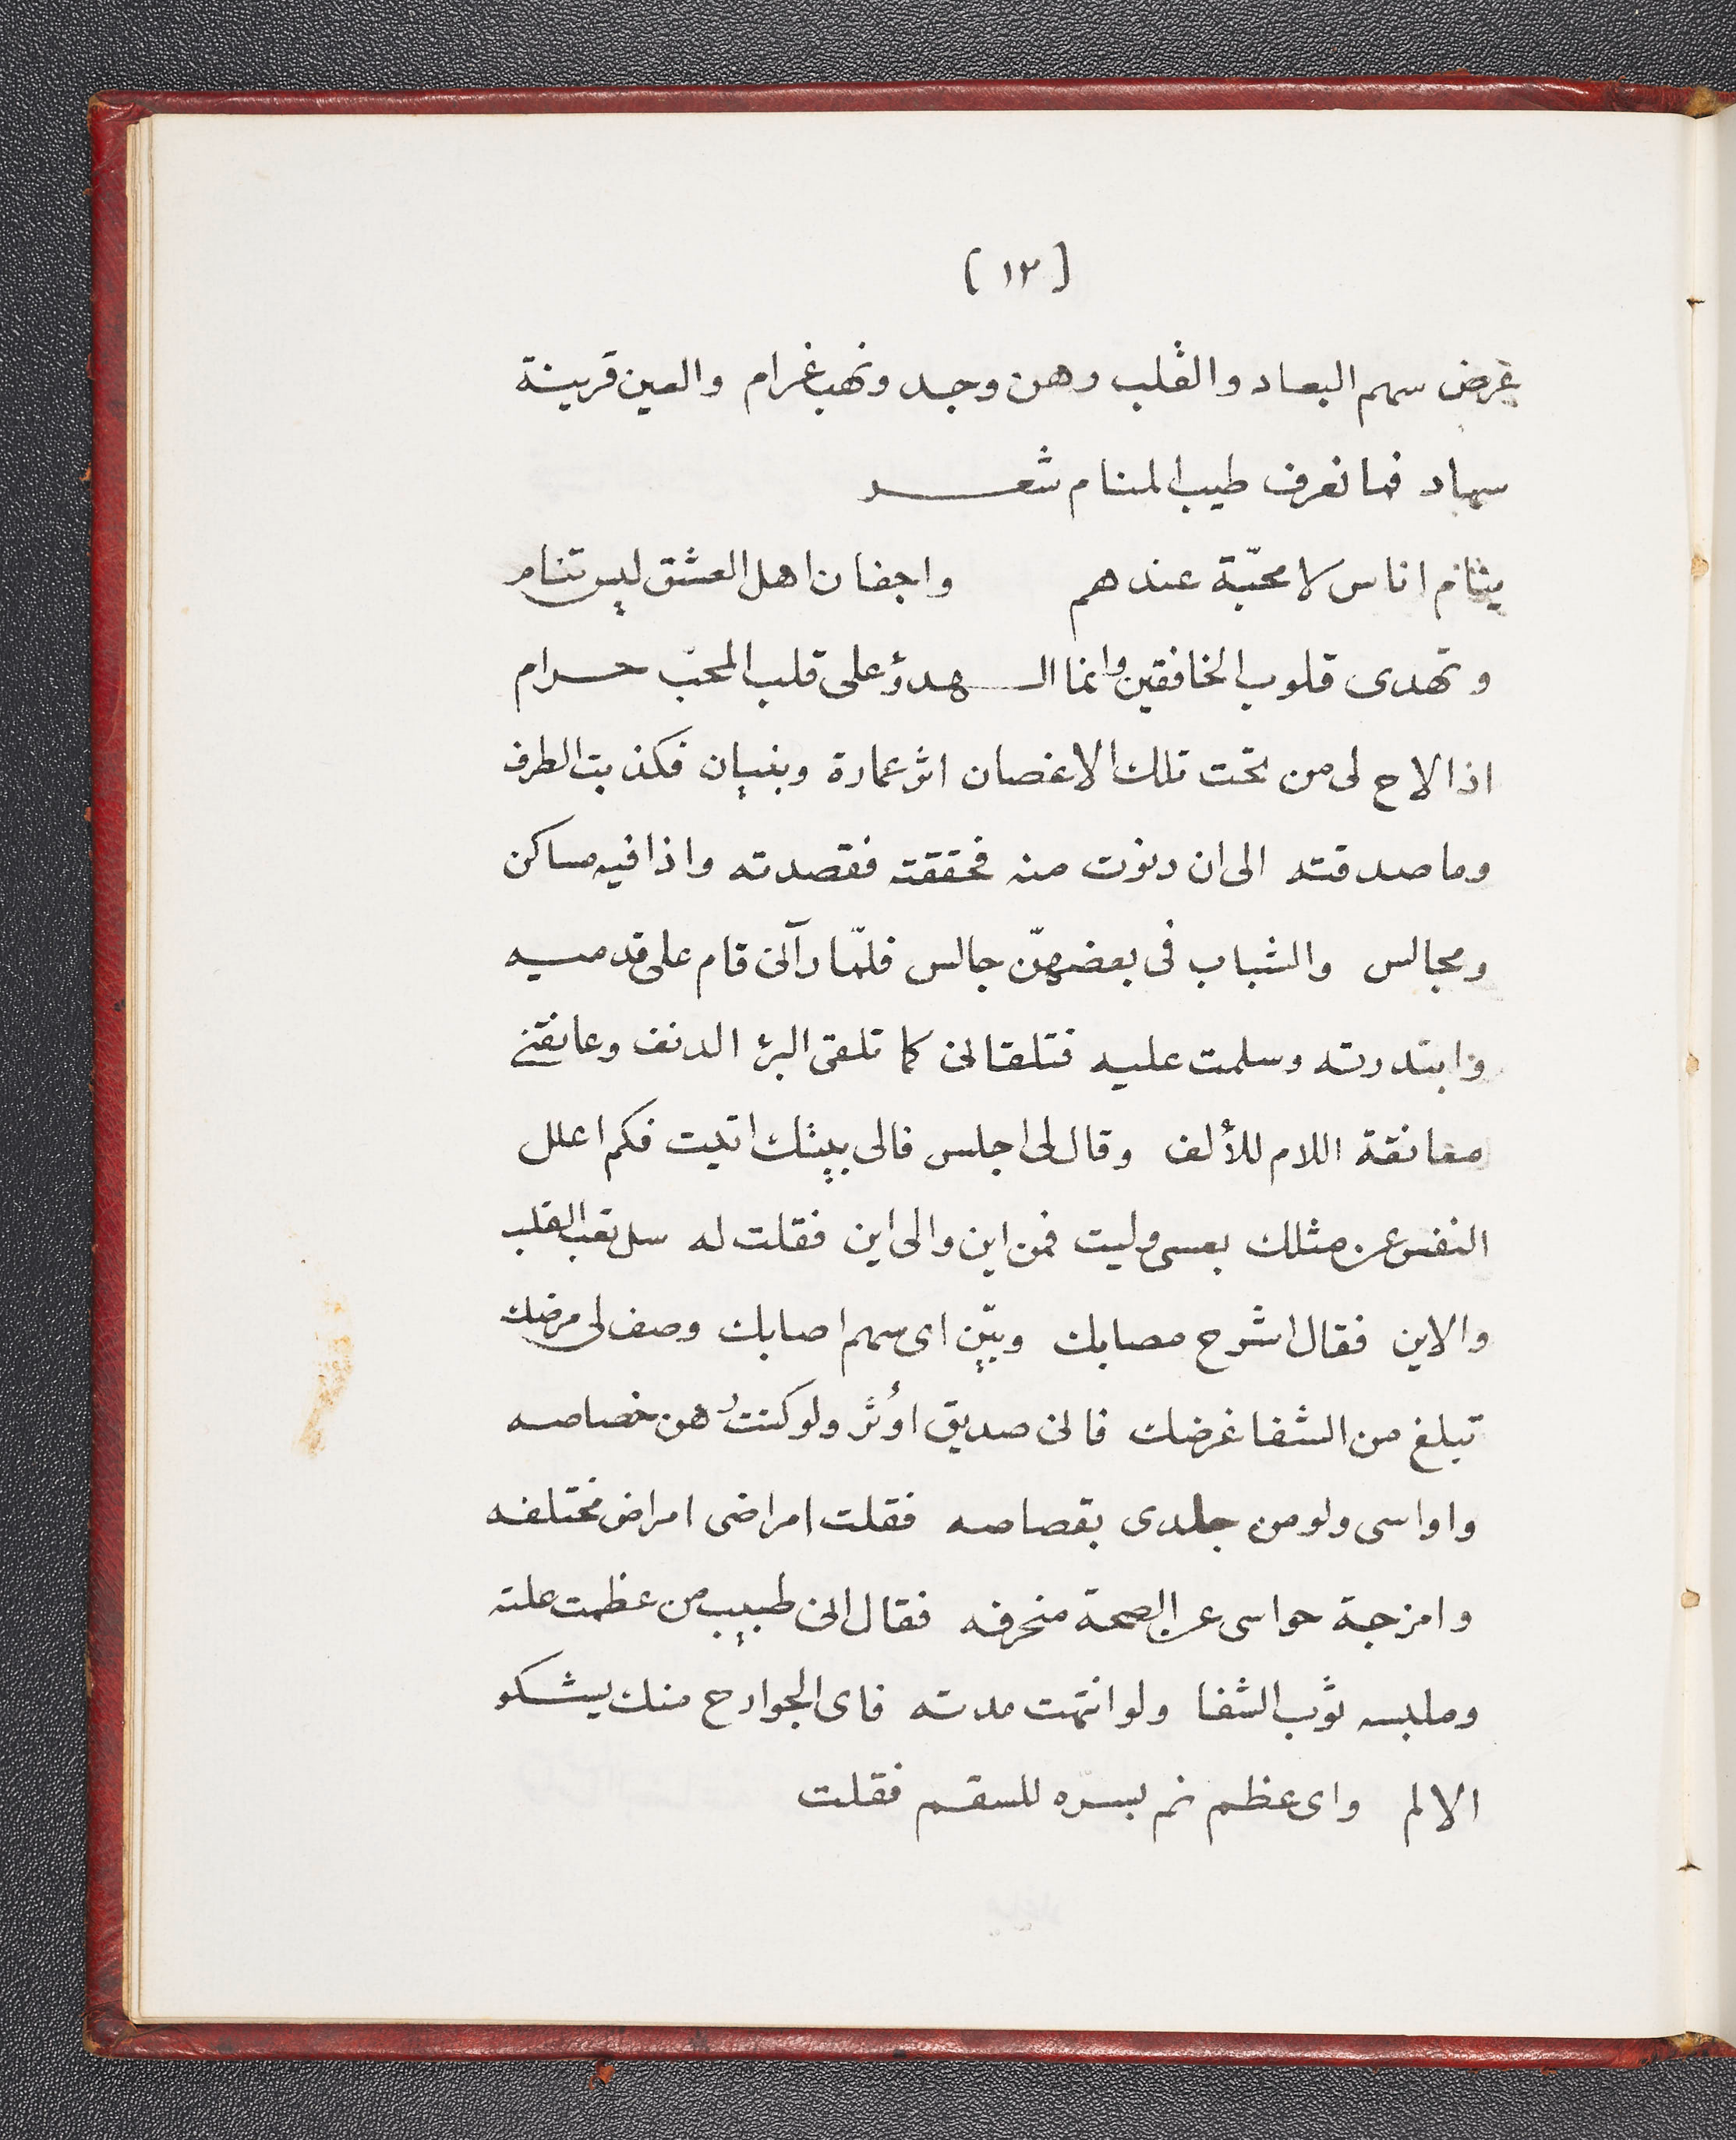 [١٢]
غرض سهم البعاد والقلب رهن وجد ونهب غرام والعين قرينة
سهاد فما تعرف طيب المنام شعر
ينام اناس لا محبّة عندهم واجفان اهل العشق ليس تنام
وتهدى قلوب الخافقين وانما الهدؤ على قلب المحبّ حرام
اذا لاح لى من تحت تلك الاغصان اثر عمارة وبنيان فكذبت الطرف
وما صدقته الى ان دنوت منه فحققته فقصدته واذا فيه مساكن
ومجالس والشباب فى بعضهنّ جالس فلمّا رآنى قام على قدميه
وابتدرته وسلمت عليه فتلقانى كما تلقى البرء الدنف وعانقنى
معانقة اللام للألف وقال لى اجلس فالى بيتك اتيت فكم اعلل
النفس عن مثلك بعسى وليت فمن اين والى اين فقلت له سل تعب القلب
والاين فقال اشرح مصابك وبيّن اى سهم اصابك وصف لى مرضك
تبلغ من الشفا غرضك فانى صديق اوُثر ولو كنتُ رهن خصاصه
واواسى ولو من جلدى بقصاصه فقلت امراضى امراض مختلفه
وامزجة حواسى عن الصحة منحرفه فقال انى طبيب من عظمت علته
وملبسه ثوب الشفا ولو انتهت مدته فاى الجوارح منك يشكو
الالم واى عظم نم بسرّه للسقم فقلت